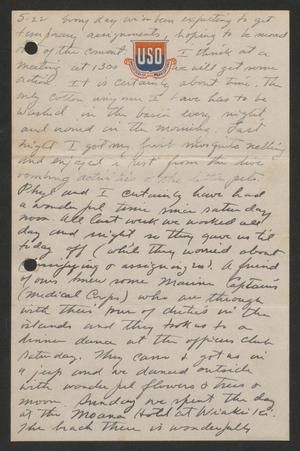 5-22 Every day we've been expecting to get
temporary assignments, hoping to be moved
out of the I think at a
USO
meeting at 1300 we will get some
action. It is certainly about time. The
only cotton I have has to be
washed in the basin every night
and ironed in the morning. Last
night I got my first mosquito netting
and enjoyed a rest from the dive
bombing activities of the little pets.
Phyl and I certainly have had
a wonderful time since Saturday
noon. All last week we worked all
day and night so they gave us til
today off while they worried about
classifying & assigning us. A friend
of ours knew some Marine Captains
(Medical Corps) who are through
with their tour of duties in the
islands and they took us to a
dinner dance at the officers club
Saturday. They came & got us in
a jeep and we danced outside
with wonderful flowers & trees &
moon. Sunday we spent the day
at the Moana Hotel at Waikiki.
The beach there is wonderfully